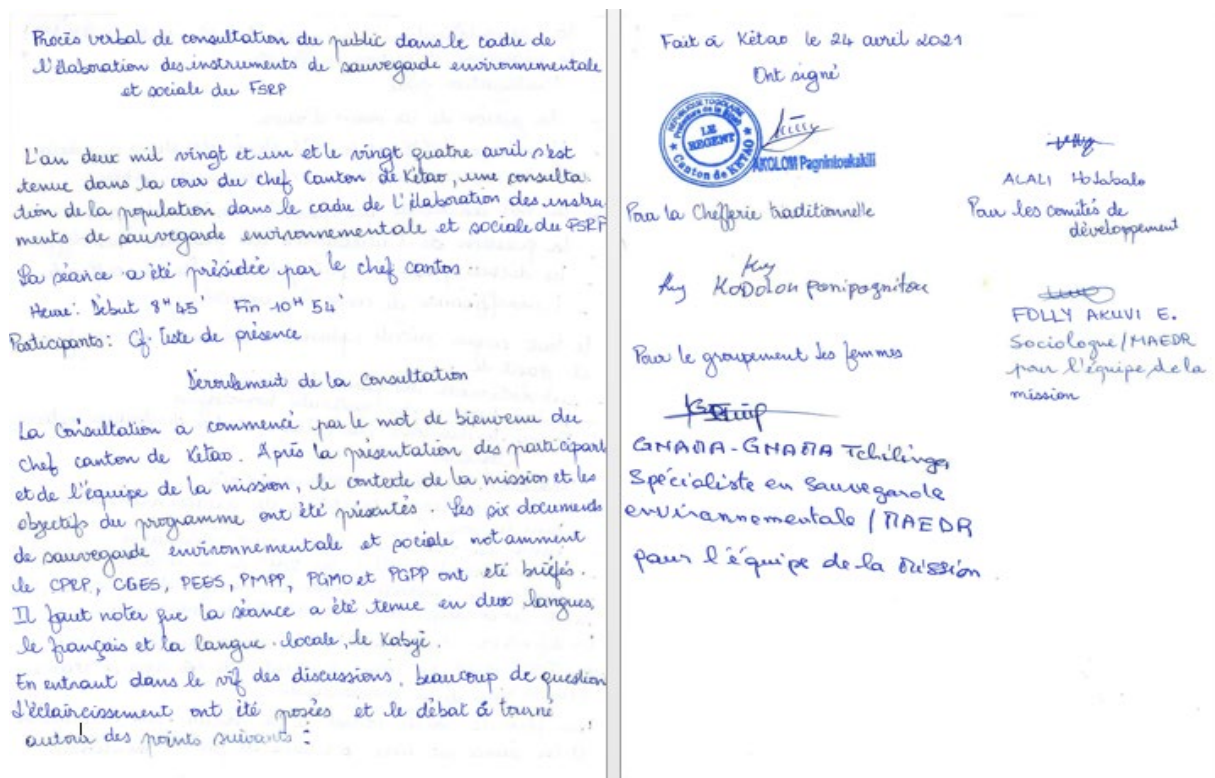 Procès verbal de consultation du public dans le cadre de
l'élaboration des instruments de sauvegarde environnementale
et sociale du FSRP
L'an deux mil vingt et un et le vingt quatre avril s'est
tenue dans la cour du chef Canton de Kétao, une consulta-
tion de la population dans le cadre de l'élaboration des instru-
ments de sauvegarde environnementale et sociale du FSRP
La séance a été présidée par le chef canton.
Heure: Début 8H 45' Fin 10H 54
Participants: Cf. liste de présence
Déroulement de la Consultation
La Consultation a commencé par le mot de bienvenu du
chef canton de Kétao. Après la présentation des participant
et de l'équipe de la mission, le contexte de la mission et les
objectifs du programme ont été présentés. Les six documents
de sauvegarde environnementale et sociale notamment
le CPRP, CGES, PEES, PMPP, PGMO et PGPP ont été briefés.
Il faut noter que la séance a été tenue en deux langues,
le français et la langue locale, le Kabyè.
En entrant dans le vif des discussions, beaucoup de question
d'éclaircissement ont été posées et le débat a tourné
autour des points suivants :
Fait à Kétao le 24 avril 2021
Ont signé
REPUBLIQUE TOGOLAISE
Préfecture de la
LE
REGENT
Canton de KETAO
AKOLOM
Pour la Chefferie traditionnelle
ALALI Hodabalo
Pour les comités de
développement
KODOLOU
Pour le groupement des femmes
FOLLY AKUVI E.
Sociologue/MAEDR
pour l'équipe de la
mission
GNAMA-GNAMA Tchilinga
Spécialiste en Sauvegarde
environnementale / MAEDR
pour l'équipe de la Mission